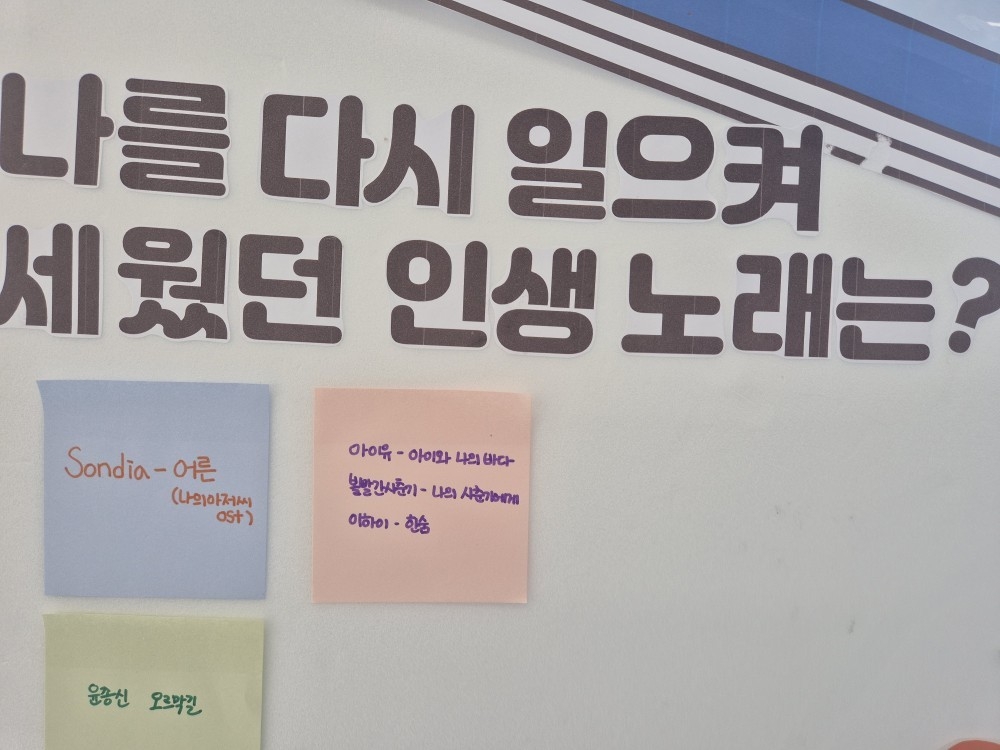 나를 다시 일으켜
세웠던 인생 노래는?
Sondia - 어른
(나의아저씨
OST)
아이유 - 아이와 나의 바다
볼빨간사춘기 - 나의 사춘기에게
이하이 - 한숨
윤종신 오르막길